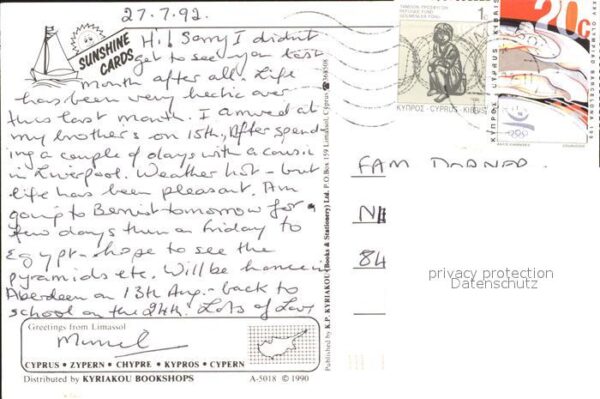 27.7.92.
SUNSHINE
CARDS
Hi! Sorry I didn't
get to see you last
month after all. Life
has been very hectic over
this last month. I arrived at
my brother's on 15th, After spend-
ing a couple of days with a cousin
in Liverpool. Weather hot - but
life has been pleasant. Am
going to tomorrow for a
few days then on Friday to
Egypt - hope to see the
pyramids etc. Will be home in
Aberdeen on 13th Aug. - back to
school on the 24th. Lots of Love
Greetings from Limassol
CYPRUS • ZYPERN • CHYPRE • KYPROS • CYPERN
Distributed by KYRIAKOU BOOKSHOPS
A-5018 © 1990
Published by K.P. KYRIAKOU (Books & Stationery) Ltd. P.O Box 159 Limassol, Cyprus
REFUGEE FUND
1c
ΚΥΠΡΟΣ CYPRUS KIBRIS
20c
ΚΥΠΡΟΣ CYPRUS KIBRIS
FAM
84
privacy protection
Datenschutz